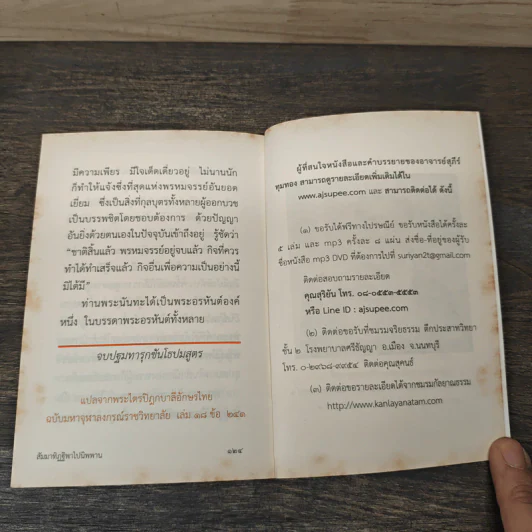 มีความเพียร มีใจเด็ดเดี่ยวอยู่ ไม่นานนัก
ก็ทำให้แจ้งซึ่งที่สุดแห่งพรหมจรรย์อันยอด
เยี่ยม ซึ่งเป็นสิ่งที่กุลบุตรทั้งหลายผู้ออกบวช
เป็นบรรพชิตโดยชอบต้องการ ด้วยปัญญา
อันยิ่งด้วยตนเองในปัจจุบันเข้าถึงอยู่ รู้ชัดว่า
“ชาติสิ้นแล้ว พรหมจรรย์อยู่จบแล้ว กิจที่ควร
ทำได้ทำเสร็จแล้ว กิจอื่นเพื่อความเป็นอย่างนี้
มิได้มี”
ท่านพระนันทะได้เป็นพระอรหันต์องค์
หนึ่ง ในบรรดาพระอรหันต์ทั้งหลาย
จบปฐมทารุกขันโธปมสูตร
แปลจากพระไตรปิฎกบาลีอักษรไทย
ฉบับมหาจุฬาลงกรณ์ราชวิทยาลัย เล่ม ๑๘ ข้อ ๒๔๑
สัมมาทิฏฐิพาไปนิพพาน
๑๒๔
ผู้ที่สนใจหนังสือและคำบรรยายของอาจารย์สุภีร์
ทุมทอง สามารถดูรายละเอียดเพิ่มเติมได้ใน
www.ajsupee.com และ สามารถติดต่อได้ ดังนี้
(๑) ขอรับได้ฟรีทางไปรษณีย์ ขอรับหนังสือได้ครั้งละ
๕ เล่ม และ mp3 ครั้งละ ๘ แผ่น ส่งชื่อ-ที่อยู่ของผู้รับ
ชื่อหนังสือ mp3 DVD ที่ต้องการไปที่ suriyan21@gmail.com
ติดต่อสอบถามรายละเอียด
คุณสุริยัน โทร. ๐๘-๐๕๕๓-๕๕๕๓
หรือ Line ID : ajsupee.com
(๒) ติดต่อขอรับที่ชมรมจริยธรรม ตึกประสาทวิทยา
ชั้น ๒ โรงพยาบาลศรีธัญญา อ.เมือง จ.นนทบุรี
โทร. ๐-๒๙๖๘-๙๙๕๔ ติดต่อคุณสุคนธ์
(๓) ติดต่อขอรายละเอียดได้จากชมรมกัลยาณธรรม
http://www.kanlayanatam.com